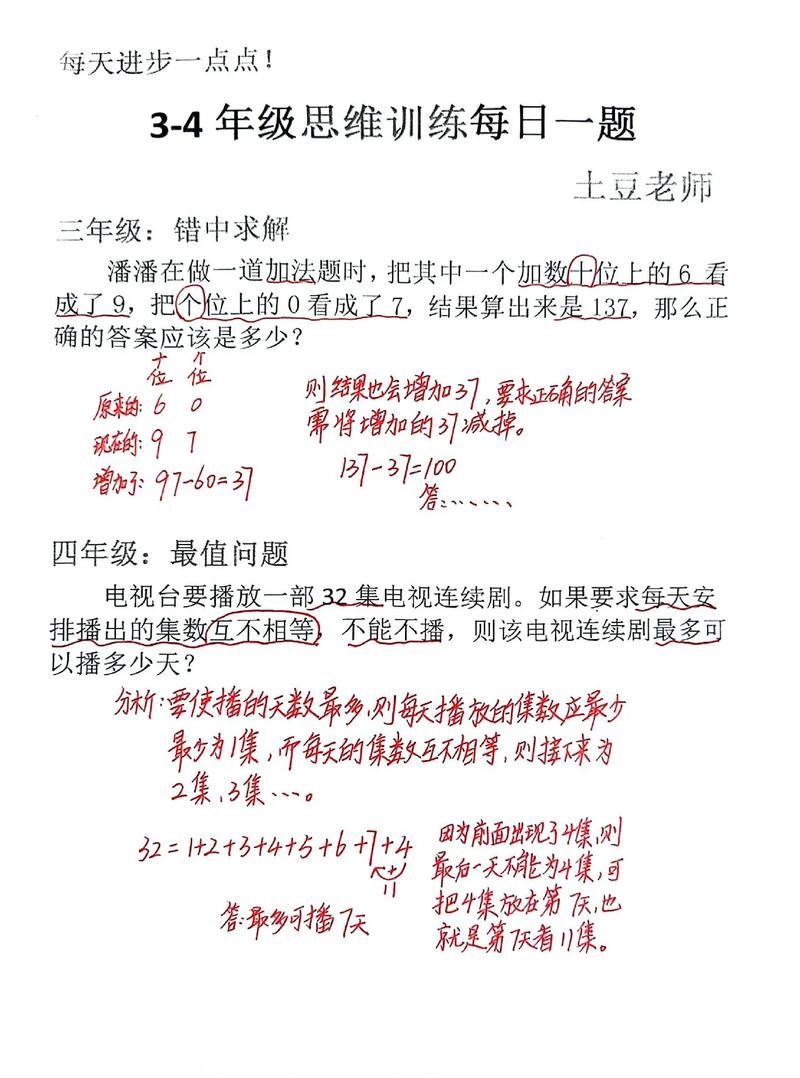 每天进步一点点！
3-4 年级思维训练每日一题
土豆老师
三年级：错中求解
潘潘在做一道加法题时，把其中一个加数十位上的 6 看
成了 9，把个位上的 0 看成了 7，结果算出来是 137，那么正
确的答案应该是多少？
十位 个位
原来的: 6 0
现在的: 9 7
增加了: 97-60=37
则结果也会增加37，要求正确的答案
需将增加的37减掉。
137-37=100
答:……
四年级：最值问题
电视台要播放一部 32 集电视连续剧。如果要求每天安
排播出的集数互不相等，不能不播，则该电视连续剧最多可
以播多少天？
分析:要使播的天数最多,则每天播放的集数应最少
最少为1集,而每天的集数互不相等,则接下来为
2集,3集…。
32=1+2+3+4+5+6+7+4
+
11
答:最多可播7天
因为前面出现了4集,则
最后一天不能为4集,可
把4集放在第7天,也
就是第7天看11集。